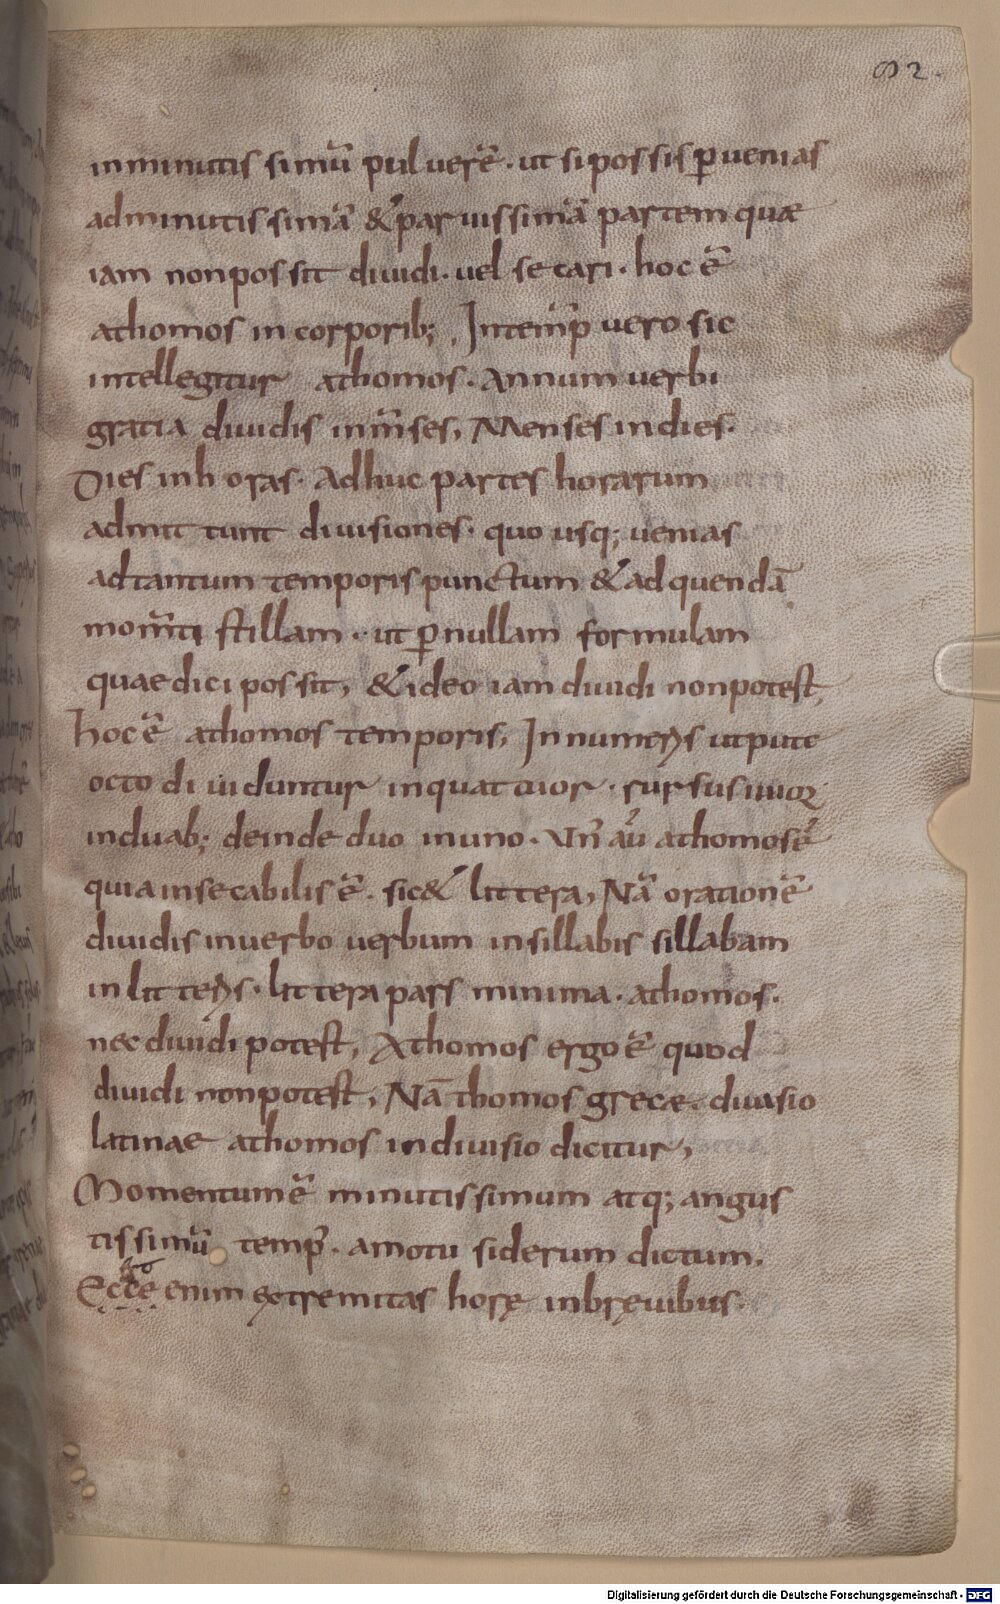 92.
inminutis simū pulverē · ut sipossis ꝑvenias
adminutissimā & parvissimā partem quæ
iam nonpossit dividi · vel secari · hoc ē
athomos in corporib; Intemp̄ vero sic
intellegitur athomos · Annum verbi
gratia dividis inm̄ses, Menses indies ·
Dies inhoras · Adhuc partes horarum
admittunt divisiones · quo usq; venias
adtantum temporis punctum & ad quendā
mom̄ti stillam · ut ꝑ nullam formulam
quae dici possit, & ideo iam dividi nonpotest,
hoc ē athomos temporis, In numeris utpute
octo dividuntur inquattuor · rursus iiiior
induab; deinde duo inuno · Vn̄ aū athomos ē
quia insecabilis ē · sic & littera, Nā orationē
dividis inverbo verbum insillabis sillabam
in litteris · littera pars minima · athomos ·
nec dividi potest, Athomos ergo ē quod
dividi nonpotest, Nā thomos grecæ · divisio
latinae athomos indivisio dicitur,
Momentum ē minutissimum atq; angus
tissimū temp̄ · amotu siderum dictum.
Ecce enim extremitas horę inbręvibus ·
Digitalisierung gefördert durch die Deutsche Forschungsgemeinschaft - DFG